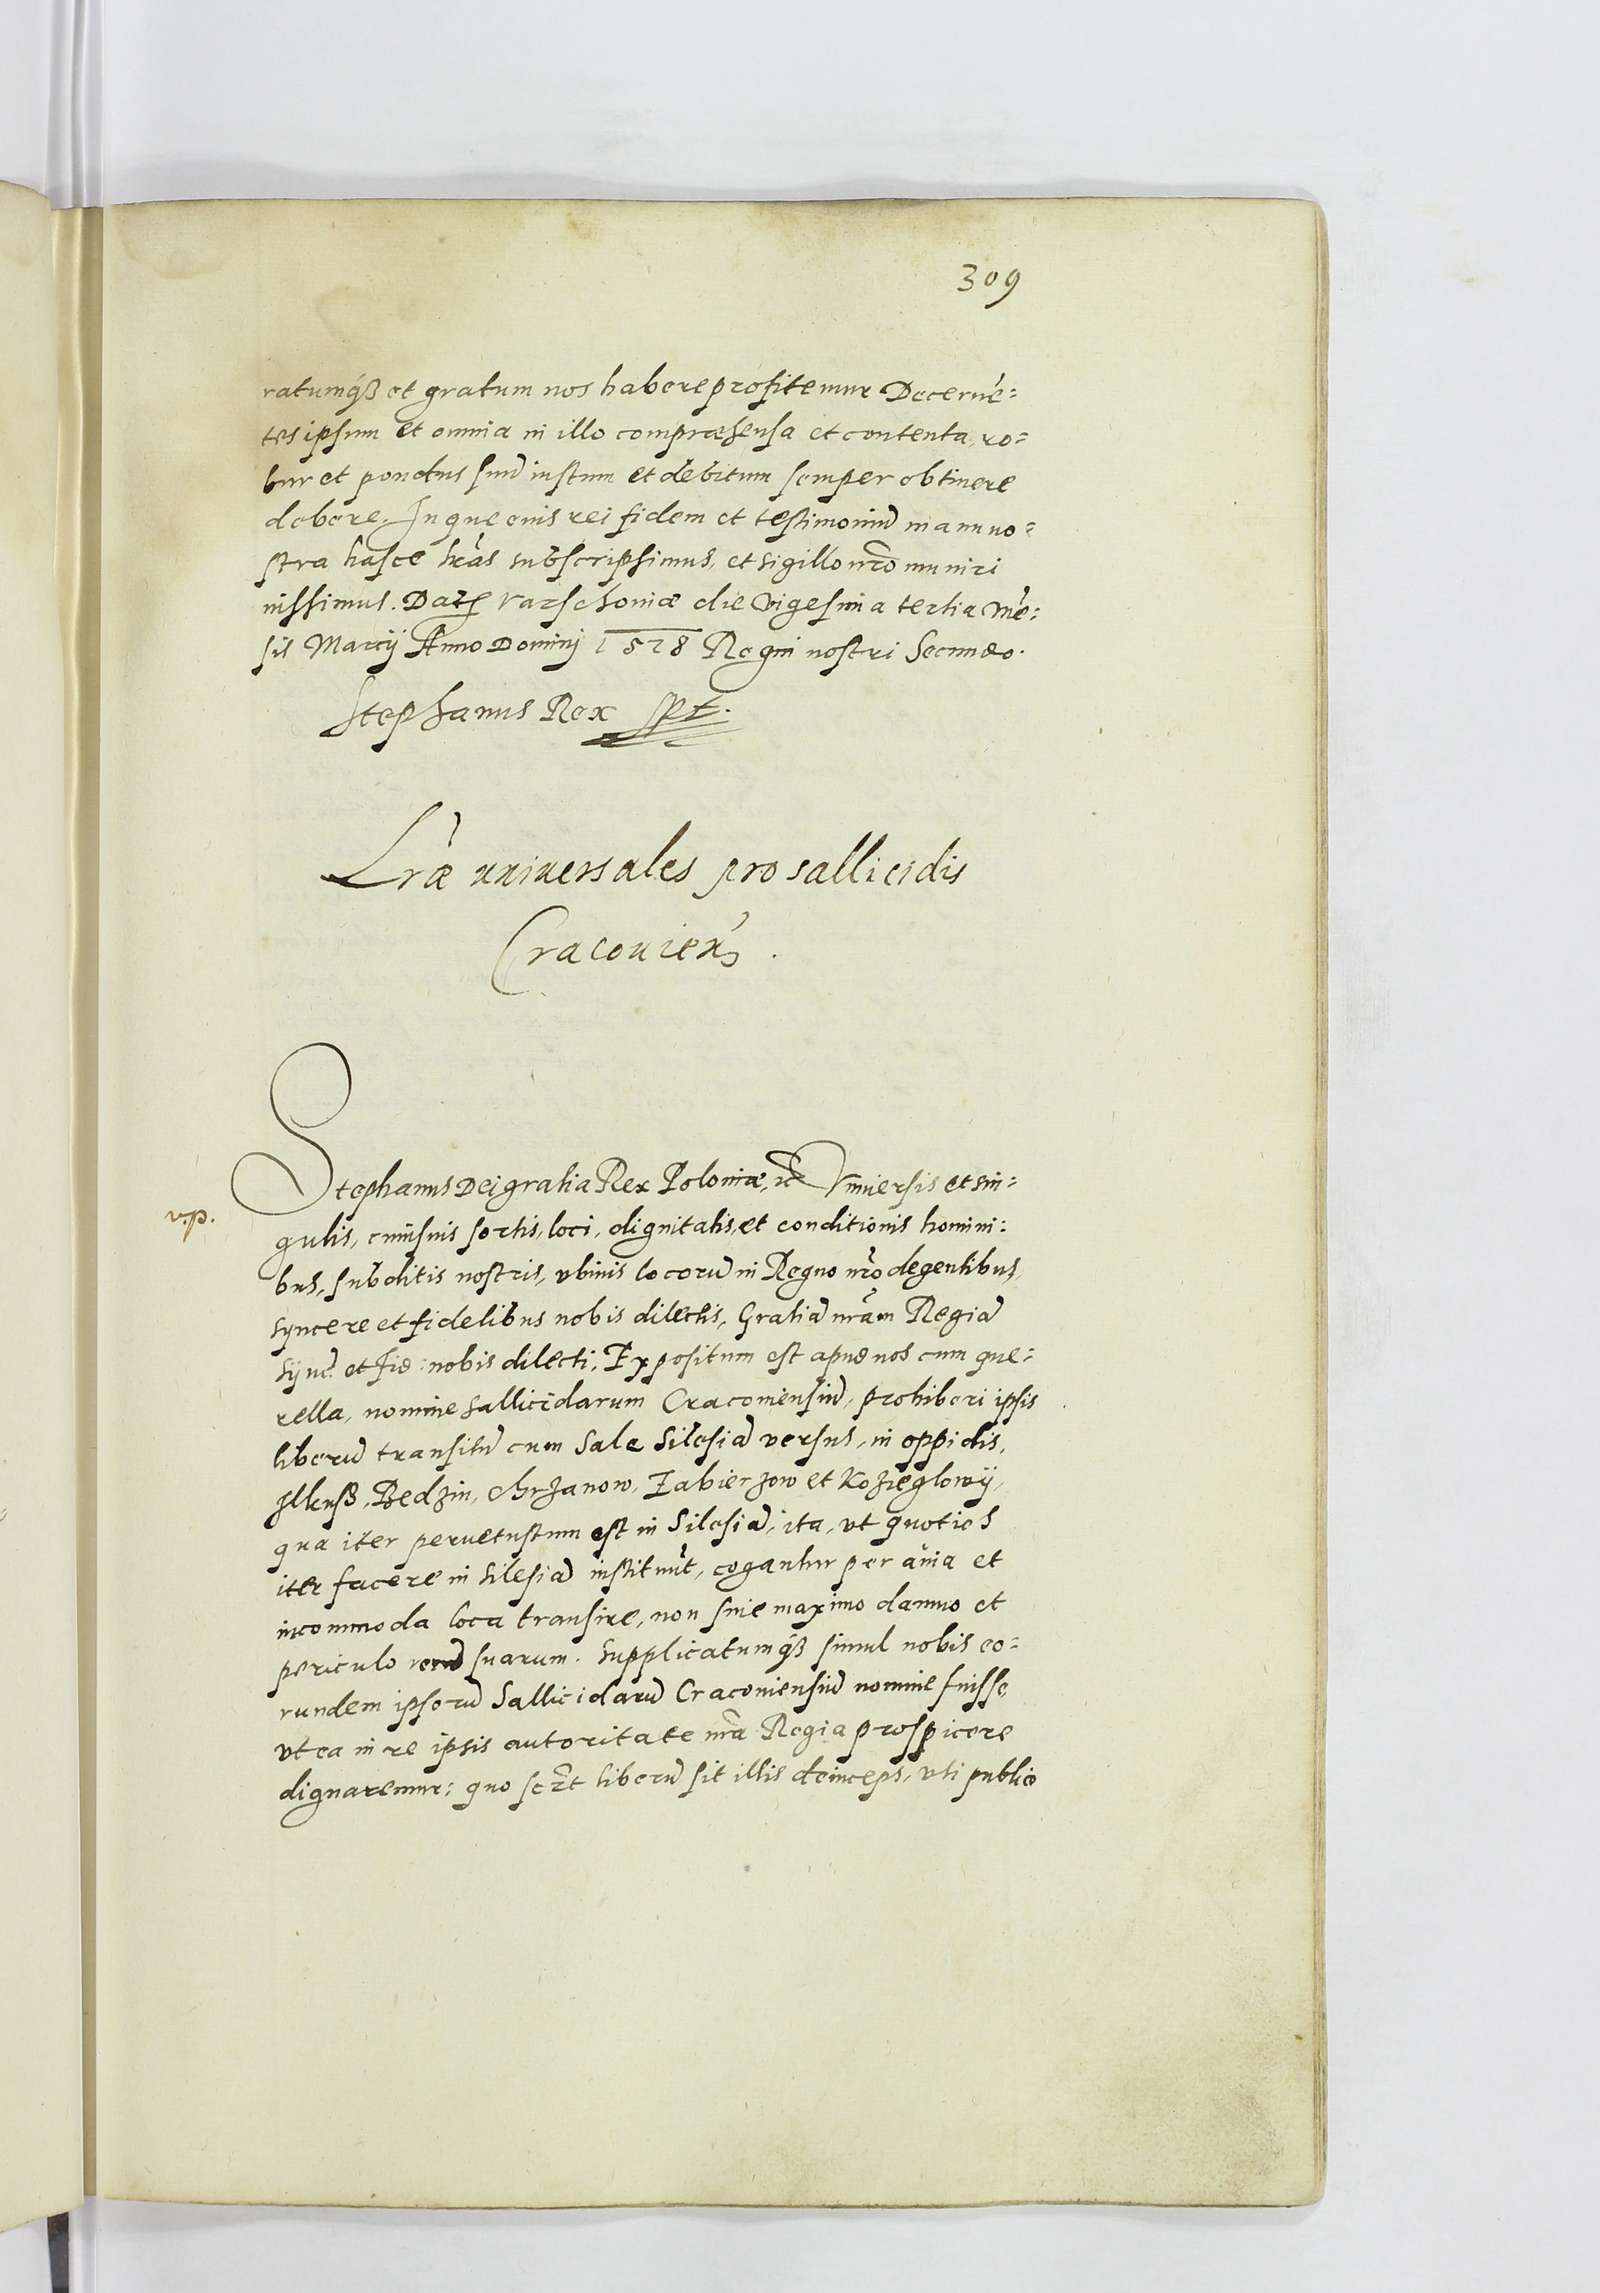 309
ratumq́ß et gratum nos habere profitemur Decerné=
tes ipsum et omnia in illo compraehensa et contenta, ro=
bur et pondus suũ iustum et debitum semper obtinere
debere. In quenis rei fidem et testimoniũ manu no=
stra hasce lrãs subscripsimus, et sigillo nrõ muniri
iussimus. Datę Varschoniae die Vigesima tertia Mẽ:
sis Marcij Anno Dominj 1578 Regni nostri Secundo.
Stephanus Rex spt.
Lrãe universales pro sallicidis
Cracovieñ.
Stephanus Dei gratia Rex Poloniae, etc Vniuersis et sin=
v.p.
gulis, cuiusuis sortis, loci, dignitatis, et conditionis homini:
bus, subditis nostris, vbiuis locorũ in Regno nrõ degentibus,
syncere et fidelibus nobis dilectis, Gratiã nrãm Regiã
sync. et fid: nobis dilecti, Expositum est apud nos cum que=
rella, nomine sallicidarum Cracouiensiũ, prohiberi ipsis
liberũ transitũ cum sale Silesiã versus, in oppidis,
Ilkusß, Bedzin, Chrzanow, Zabierzow et Kozieglowij,
qua iter peruetustum est in Silesiã, ita, vt quoties
iter facere in Silesiã instituũt, cogantur per auia et
incommoda loca transire, non sine maximo damno et
periculo rerũ suarum. Supplicatumq́ß simul nobis eo=
rundem ipsorũ Sallicidarũ Cracouiensiũ nomine fuisse,
vt ea in re ipsis autoritate nrã Regia prospicere
dignaremur: quo scz̃t liberũ sit illis deinceps, vti publico